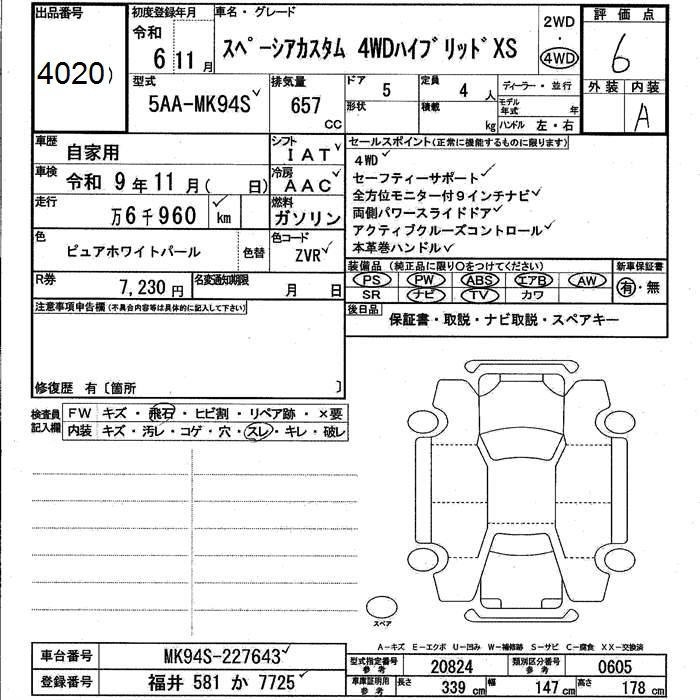 出品番号
4020)
初度登録年月
令和
6 11月
車名・グレード
スペーシアカスタム 4WDハイブリッドXS
2WD
・
4WD
評価点
6
外装 内装
A
型式
5AA-MK94S
排気量
657
CC
ドア
5
形状
定員
4人
積載
kg
ディーラー・並行
モデル年式 年
ハンドル 左・右
車歴
自家用
シフト
IAT
車検
令和 9年11月( 日)
冷房
AAC
走行
万6千960
km
燃料
ガソリン
色
ピュアホワイトパール
色替
色コード
ZVR
R券
7,230円
名変通知期限
月 日
セールスポイント(正常に機能するものに限ります)
4WD
セーフティーサポート
全方位モニター付9インチナビ
両側パワースライドドア
アクティブクルーズコントロール
本革巻ハンドル
装備品 (純正品に限り○をつけてください)
PS PW ABS エアB AW
SR ナビ TV カワ
新車保証書
有・無
後日品
保証書・取説・ナビ取説・スペアキー
注意事項申告欄(不具合内容等は具体的に記入して下さい)
修復歴 有〔箇所 〕
検査員記入欄
FW キズ・飛石・ヒビ割・リペア跡・×要
内装 キズ・汚レ・コゲ・穴・スレ・キレ・破レ
スペア
A-キズ E-エクボ U-凹み W-補修跡 S-サビ C-腐食 XX-交換済
車台番号
MK94S-227643
登録番号
福井 581 か 7725
型式指定番号 参考
20824
類別区分番号 参考
0605
車庫証明用 参考
長さ 339cm 幅 147cm 高さ 178cm